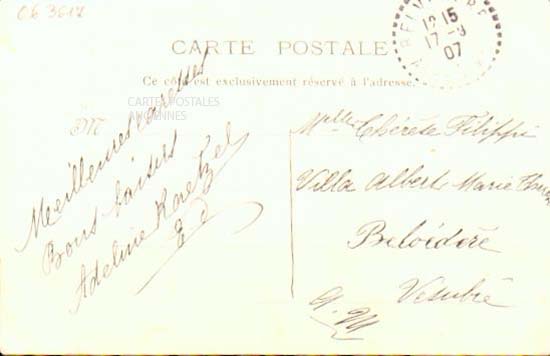 Cb 3617
BELVEDERE
12 15
17 -8
07
CARTE POSTALE
Ce côté est exclusivement réservé à l'adresse.
CARTES POSTALES
ANCIENNES
Meilleures caresses
Bons baisers
Adeline
Mlle Thérèse Filippi
Villa Albert Marie
Belvédère
Vésubie
A. M